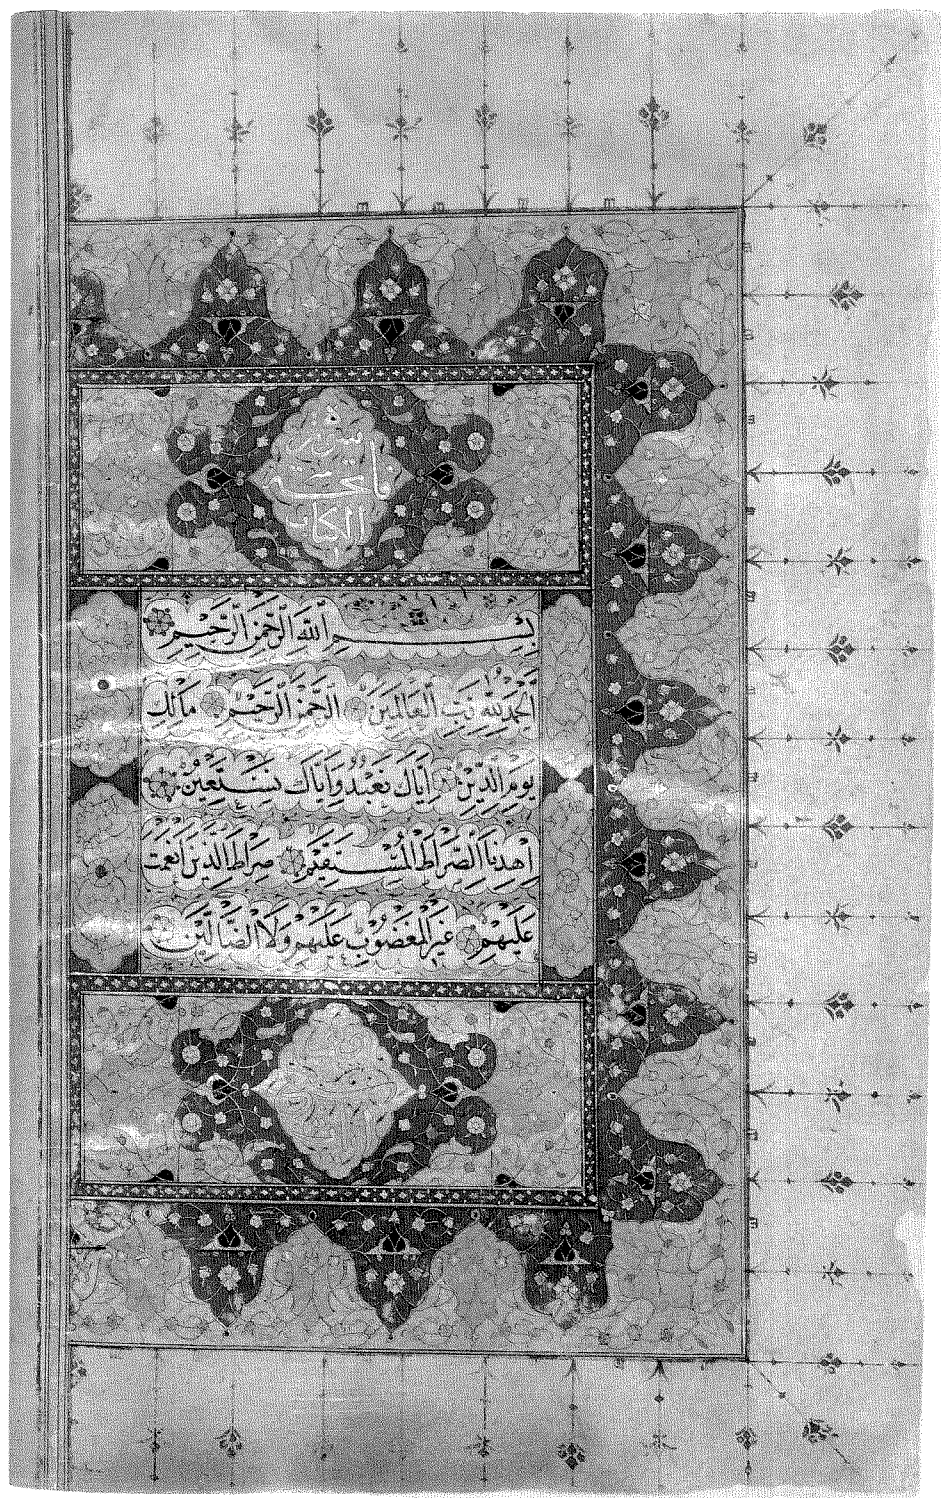 سورة
فاتحة
الكتاب
بِسْمِ اللَّهِ الرَّحْمَنِ الرَّحِيمِ
اَلْحَمْدُ لِلَّهِ رَبِّ الْعَالَمِينَ الرَّحْمَنِ الرَّحِيمِ مَالِكِ
يَوْمِ الدِّينِ اِيَّاكَ نَعْبُدُ وَاِيَّاكَ نَسْتَعِينُ
اِهْدِنَا الصِّرَاطَ الْمُسْتَقِيمَ صِرَاطَ الَّذِينَ اَنْعَمْتَ
عَلَيْهِمْ غَيْرِ الْمَغْضُوبِ عَلَيْهِمْ وَلَا الضَّالِّينَ